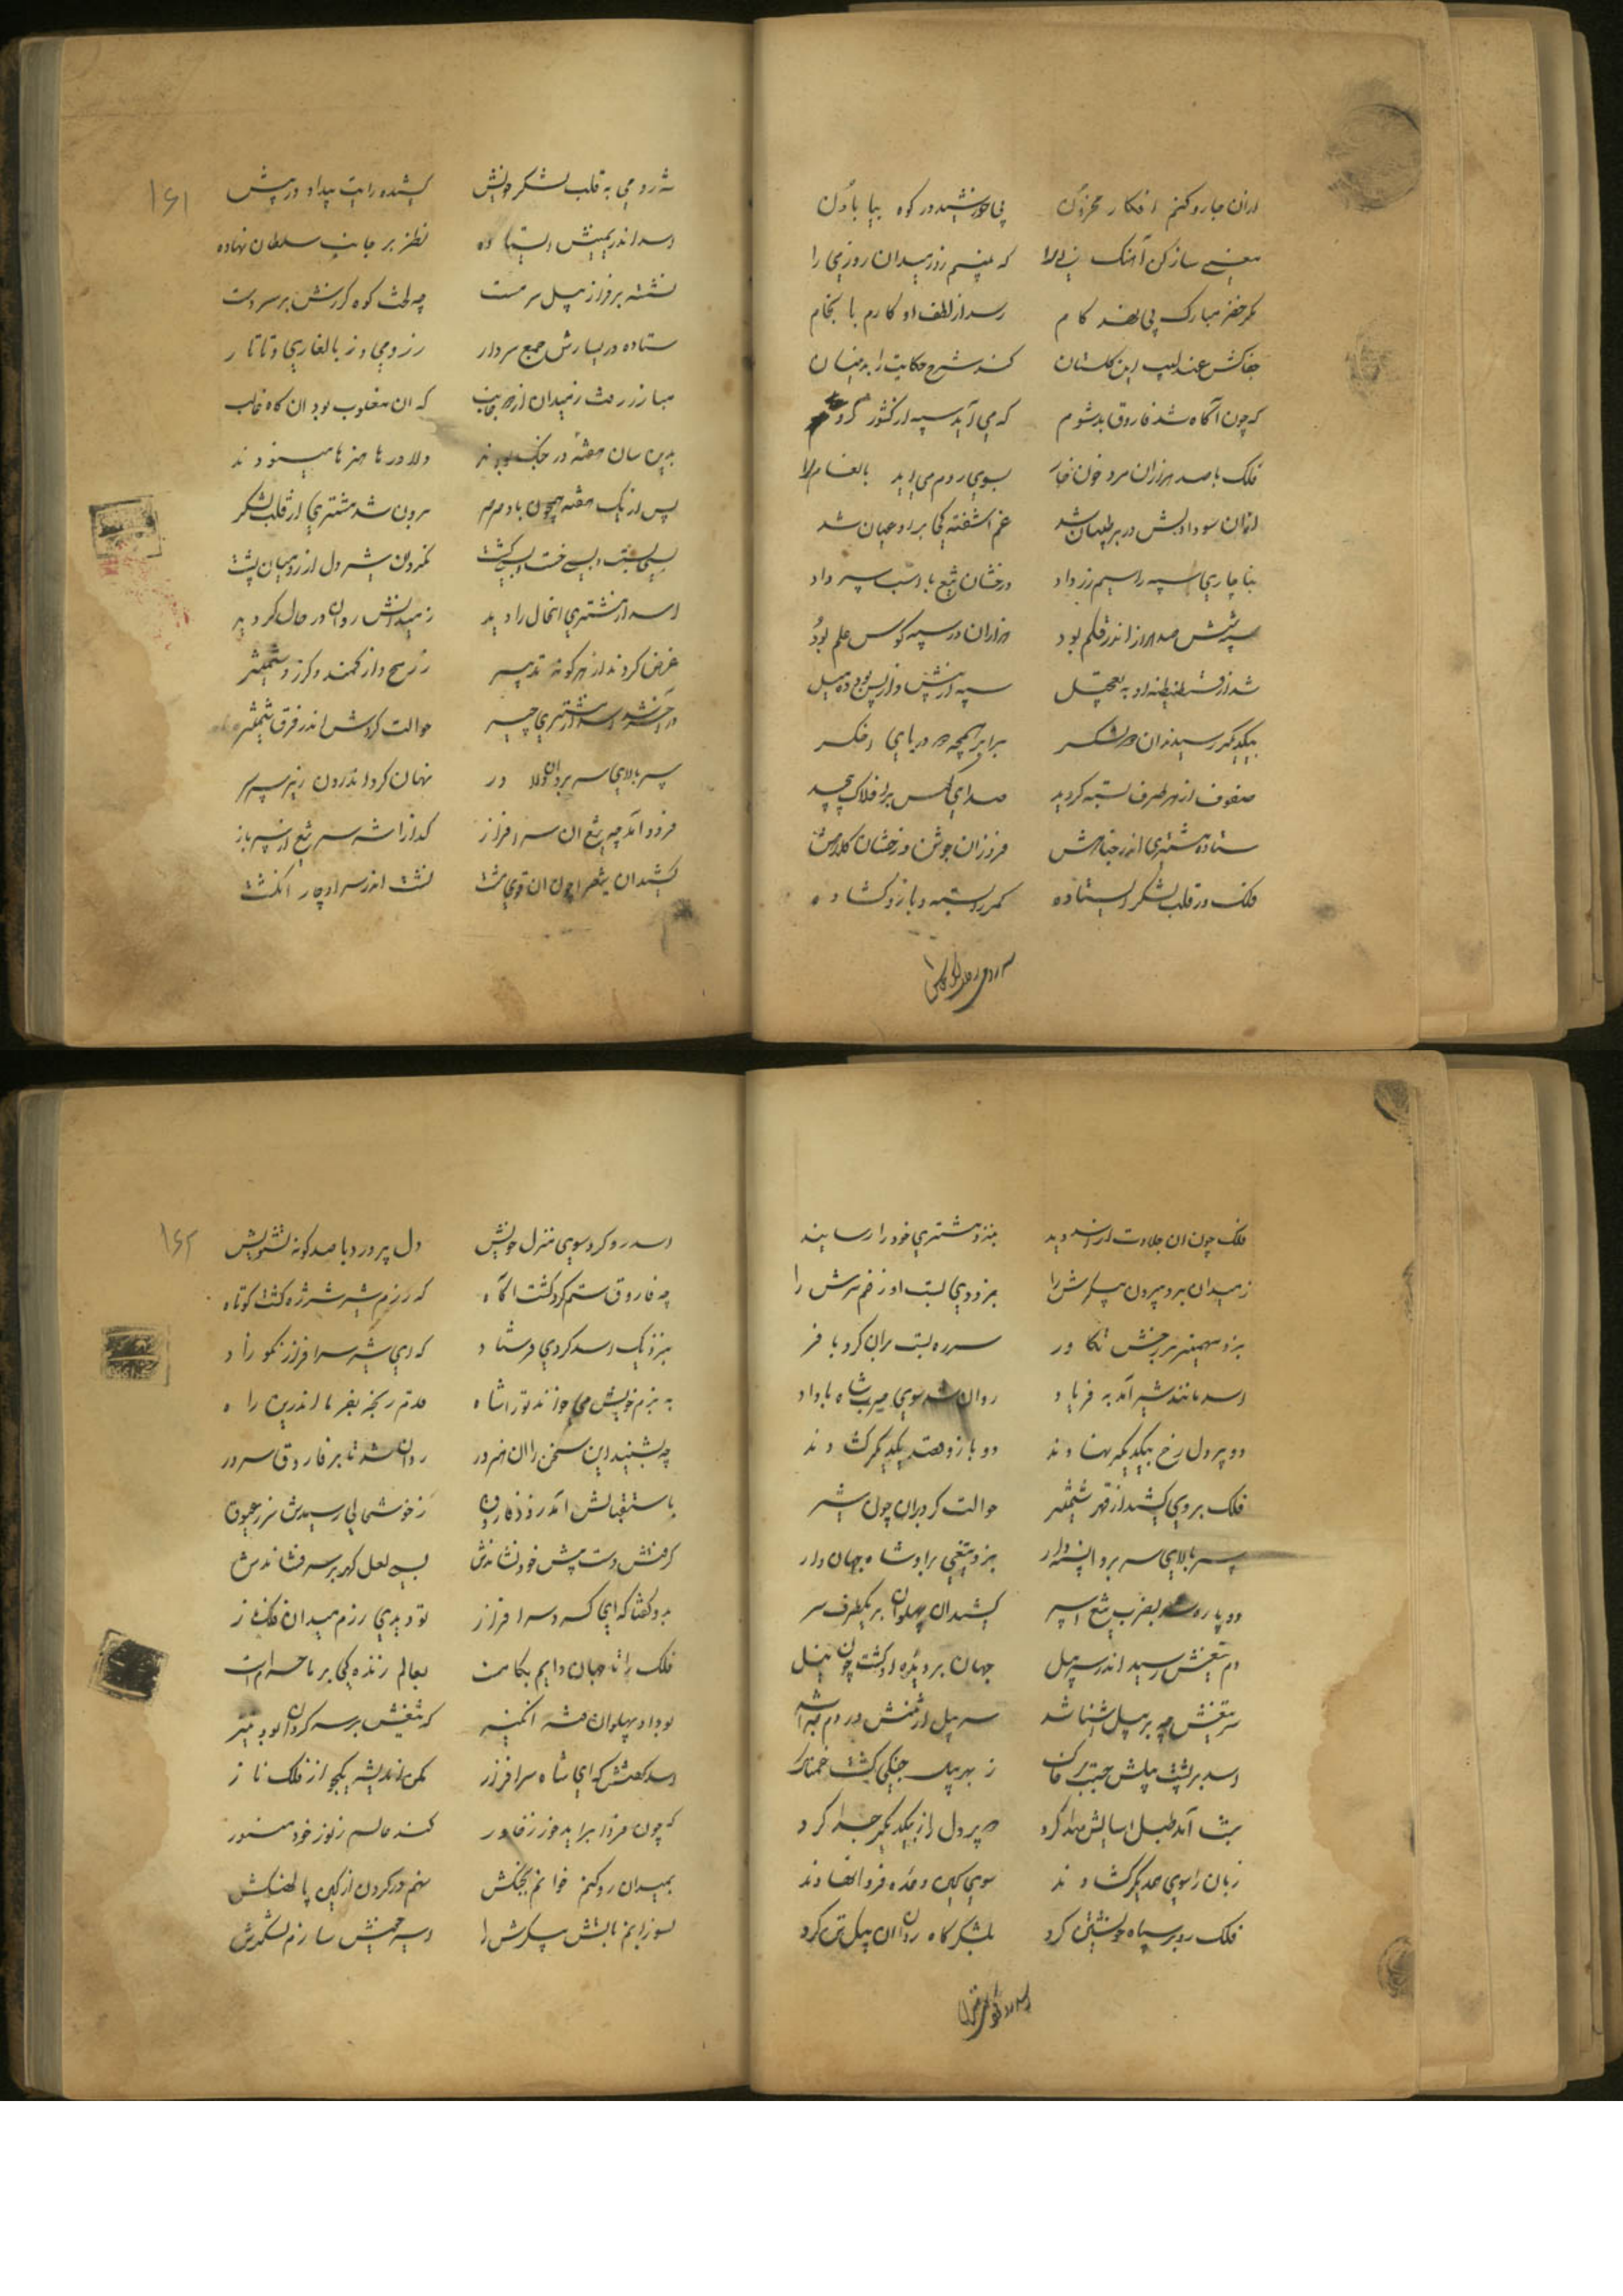 ازان جا رو کنم افکار محزون پی خورشید در کوه بیابان
مغنی ساز کن آهنگ نی را که بینم روز میدان روز می را
مگر خضر مبارک پی نهد کام رسد از لطف او کارم بانجام
جفاکش عندلیب این گلستان کند شرح حکایت را بدینسان
که چون آگاه شد فاروق بدشوم که می آید سپه از کشور
فلک با صد هزاران مرد خون خوار بسوی روم می آید
ازان سودا دلش در بر طپان شد غم آشفتگی بر او عیان شد
بناچاری سپه را سیم زر داد درخشان تیغ با اسب سپر داد
سپه شش صد هزار اندر قلم بود هزاران در سپه کوس علم بود
شد از قسطنطنیه او به تعجیل سپه از پیش و از پس بود ده میل
بیکدیگر رسیدند آن دو لشکر برابر همچو دو دریای اخگر
صفوف از هر طرف بسته گردید صدای کوس بر افلاک پیچید
ستاده مشتری اندر جناحش فروزان جوشن درخشان کلاهش
فلک در قلب لشکر ایستاده کمر بسته و بازو گشاده
شه رومی به قلب لشکر خویش
۱۶۱
شه رومی به قلب لشکر خویش کشیده رایت بیداد در پیش
اسد اندر یمینش ایستاده نظر بر جانب سلطان نهاده
نشسته بر فراز پیل سرمست چه لخت کوه گرزش بر سر دست
ستاده در یسارش جمع سردار ز رومی و ز بالغاری و تاتار
مبارز رفت ز میدان از دو جانب که آن مغلوب بود آن گاه غالب
بدین سان هفته در جنگ بودند دلاورها هنرها مینمودند
پس از یک هفته همچون باد صرصر برون شد مشتری از قلب لشکر
بسی بست و بسی خست و بسی کشت نگردون شیر دل از رومیان پشت
اسد از مشتری این حال را دید ز میدانش روان در حال گردید
غرض کردند از هر گونه تدبیر ز رمح و از کمند و گرز و شمشیر
در آخر شد اسد از مشتری چیر حوالت کردش اندر فرق شمشیر
سپر بالای سر برد آن دلاور نهان کرد اندرون زیر سپر سر
فرود آمد چه تیغ آن سرافراز گذارا شد سر تیغ از سپر باز
کشید آن تیغ را چون آن قوی مشت نشست اندر سر او چار انگشت
فلک چون آن جلادت از اسد دید بنزد مشتری خود را رسانید
ز میدان برد بیرون پیکرش را بزودی بست او زخم سرش را
بزد مهمیز بر رخش تکاور سر ره بست بر آن گرد با فر
اسد مانند شیر آمد به فریاد روان شد سوی میر شاه با داد
دو پر دل رخ بیکدیگر نهادند دو بازو هفت یکدیگر گشادند
فلک بر وی کشید از قهر شمشیر حوالت کرد بر آن چون شیر
سپر بالای سر برد بزد تیغی بر او شاه جهان دار
دو پاره شد بضرب تیغ اسپر کشید آن پهلوان بر یکطرف سر
دم تیغش رسید اندر سر پیل جهان بر دیده او گشت چون نیل
سر تیغش چه بر پیل آشنا شد سر پیل از تنش در دم جدا شد
اسد بر پشت پیلش جست بر خاک ز بهر پیل جنگی گشت غمناک
شب آمد طبل آسایش صدا کرد دو پر دل را ز یکدیگر جدا کرد
زبان را سوی همدیگر گشادند سوی کین وعده فردا نهادند
فلک رو بر سپاه خویشتن کرد بلشکرگاه روان آن پیل تن کرد
اسد رو کرد سوی منزل
۱۶۲
اسد رو کرد سوی منزل خویش دل پر درد با صد گونه تشویش
چه فاروق ستمگر گشت آگاه که رزم شیر شرزه گشت کوتاه
بنزدیک اسد کردی فرستاد که ای شیر سرافراز نکوزاد
به بزم خویش می خواند ترا شاه قدم رنجه بفرما اندرین راه
چه بشنید این سخن را آن هنرور روان شد تا بر فاروق سرور
باستقبالش آمد زود فاروق ز خوشحالی رسیدش سر بعیوق
گرفتش دست پیش خود نشاندش بسی لعل گهر بر سر فشاندش
بدو گفتا که ای گرد سرافراز تو دیدی رزم میدان فلک ناز
فلک را تا جهان دایم بکامست بعالم زندگی بر ما حرامست
نبودا پهلوان که تیغش بر سر گردان بود تیز
اسد گفتش که ای شاه سرافراز مکن اندیشه هیچ از فلک ناز
که چون فردا برآید خور ز خاور کند عالم ز نور خود منور
بمیدان رو کنم خوانم بجنگش نهم در گردن از کین پالهنگش
بسوزانم بآتش پیکرش را اسیر خویش سازم لشکرش را